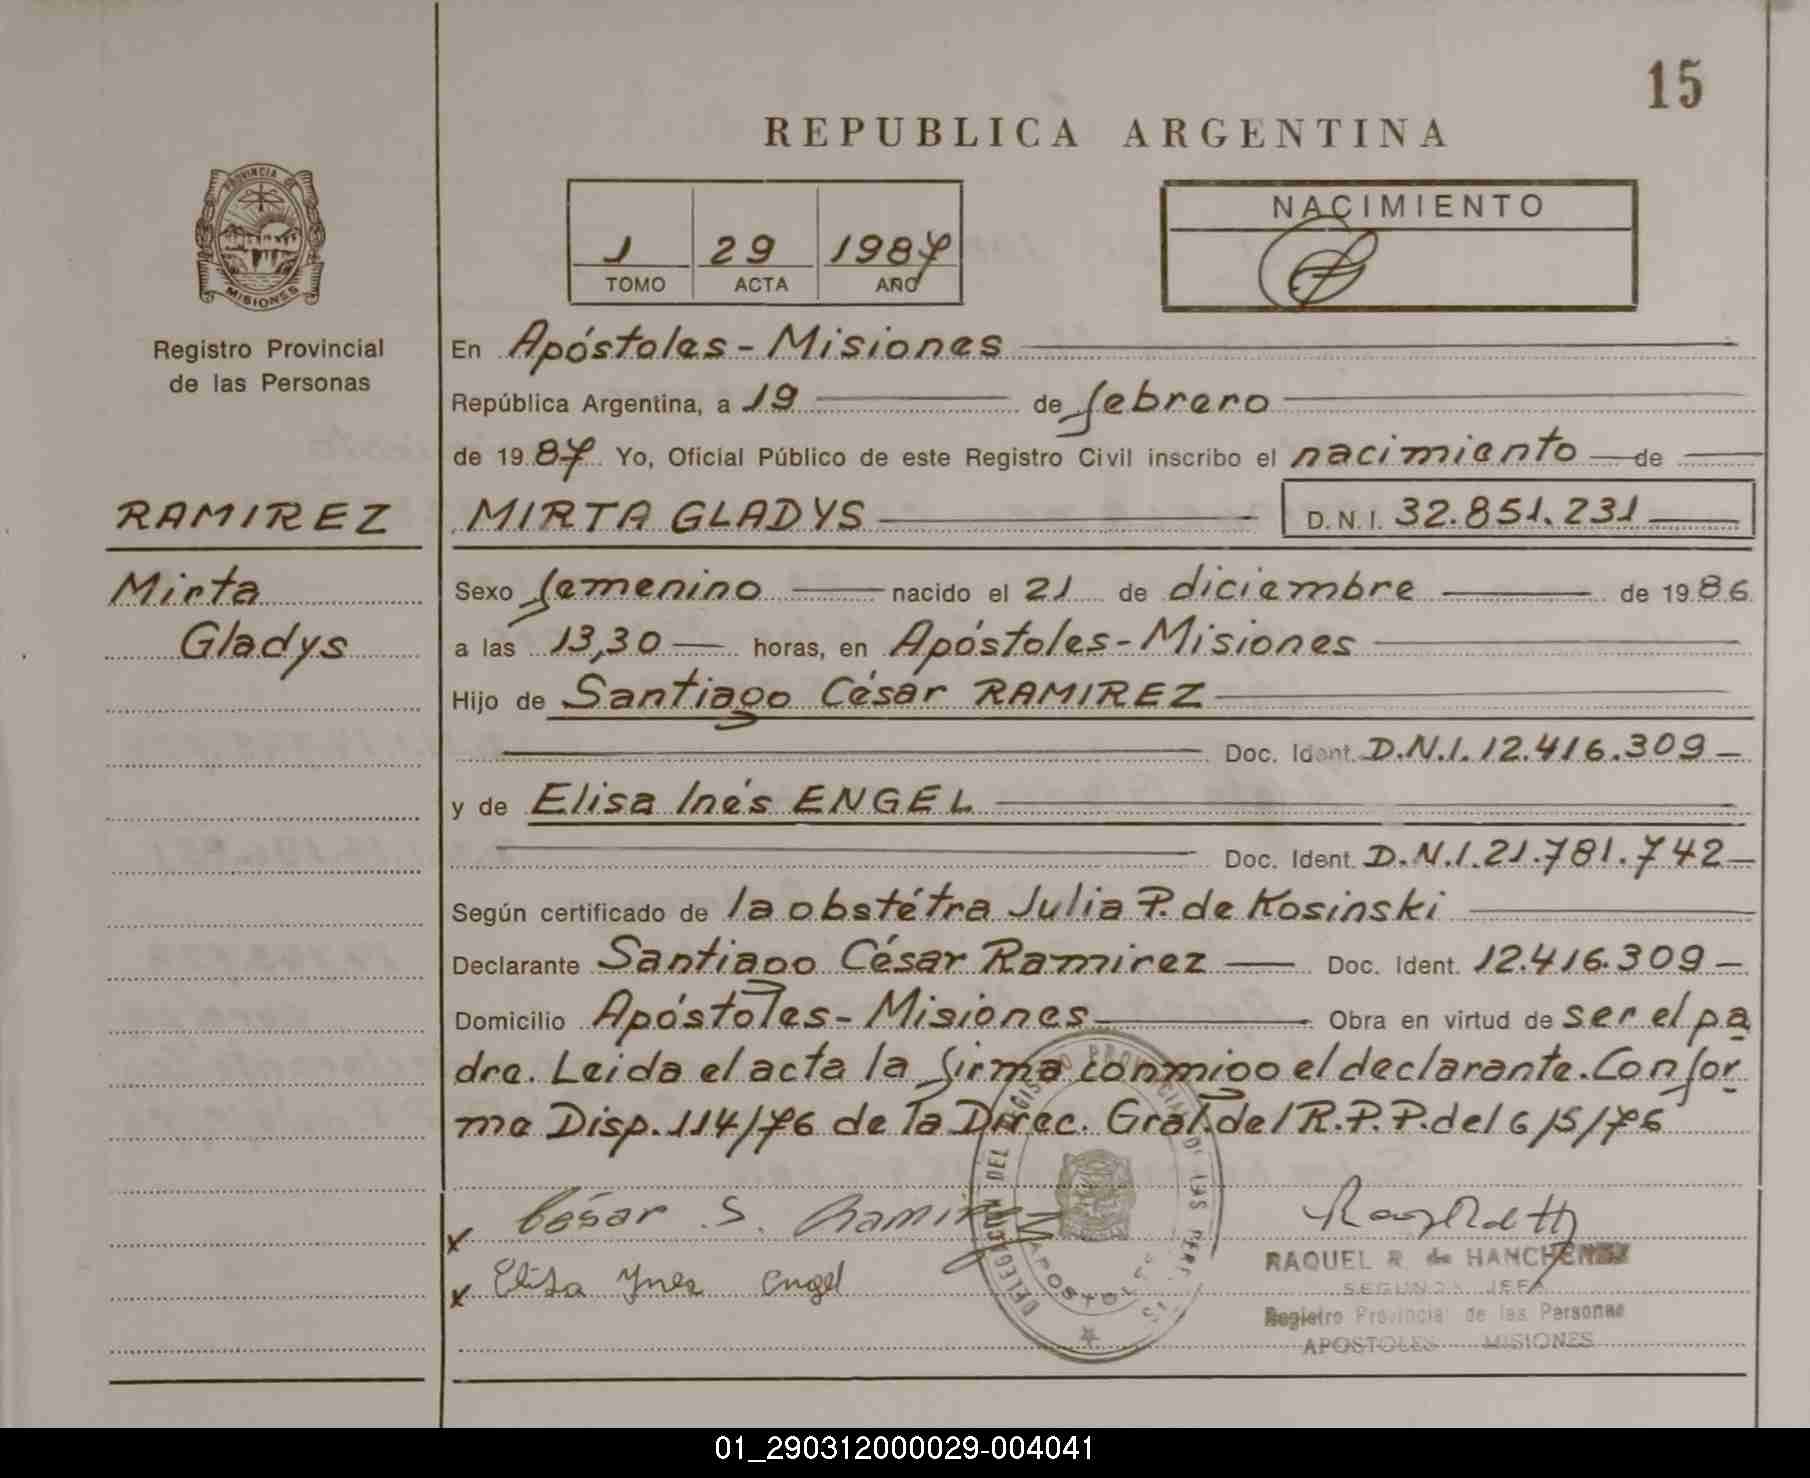 15
REPUBLICA ARGENTINA
PROVINCIA DE
MISIONES
Registro Provincial
de las Personas
1 29 1987
TOMO ACTA AÑO
NACIMIENTO
En Apóstoles - Misiones
República Argentina, a 19 de febrero
de 1987 Yo, Oficial Público de este Registro Civil inscribo el nacimiento de
RAMIREZ
MIRTA GLADYS D.N.I. 32.851.231
Mirta
Gladys
Sexo femenino nacido el 21 de diciembre de 1986
a las 13,30 horas, en Apóstoles - Misiones
Hijo de Santiago César RAMIREZ
Doc. Ident. D.N.I. 12.416.309
y de Elisa Inés ENGEL
Doc. Ident. D.N.I. 21.781.742
Según certificado de la obstétra Julia P. de Kosinski
Declarante Santiago César Ramirez Doc. Ident. 12.416.309
Domicilio Apóstoles - Misiones Obra en virtud de ser el pa
dre. Leida el acta la firma conmigo el declarante. Confor
me Disp. 114/76 de la Direc. Gral. del R.P.P. del 6/5/76
x César S. Ramirez
x Elisa Ynes Engel
DELEGACION DEL REGISTRO PROVINCIAL DE LAS PERS
APOSTOLES
RAQUEL R. de
SEGUNDA JEFA
Registro Provincial de las Personas
APOSTOLES MISIONES
01_290312000029-004041